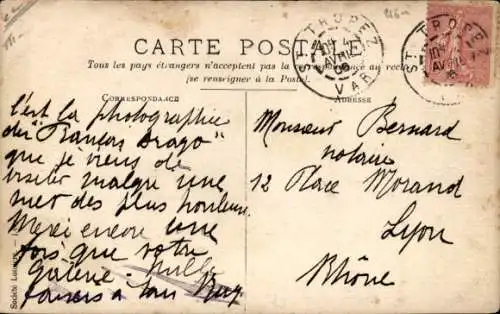 CARTE POSTALE
Tous les pays étrangers n'acceptent pas la correspondance au recto
(se renseigner à la Poste).
CORRESPONDANCE
ADRESSE
c'est la photographie
du "François Arago"
que je viens de
visiter malgré une
mer des plus houleuse
Merci encore une
fois que votre
galerie. Mille
baisers à tous
Monsieur Bernard
notaire
12 Place Morand
Lyon
Rhône
ST. TROPEZ
4
AVRIL
VAR
ST. TROPEZ
AVRIL
Société